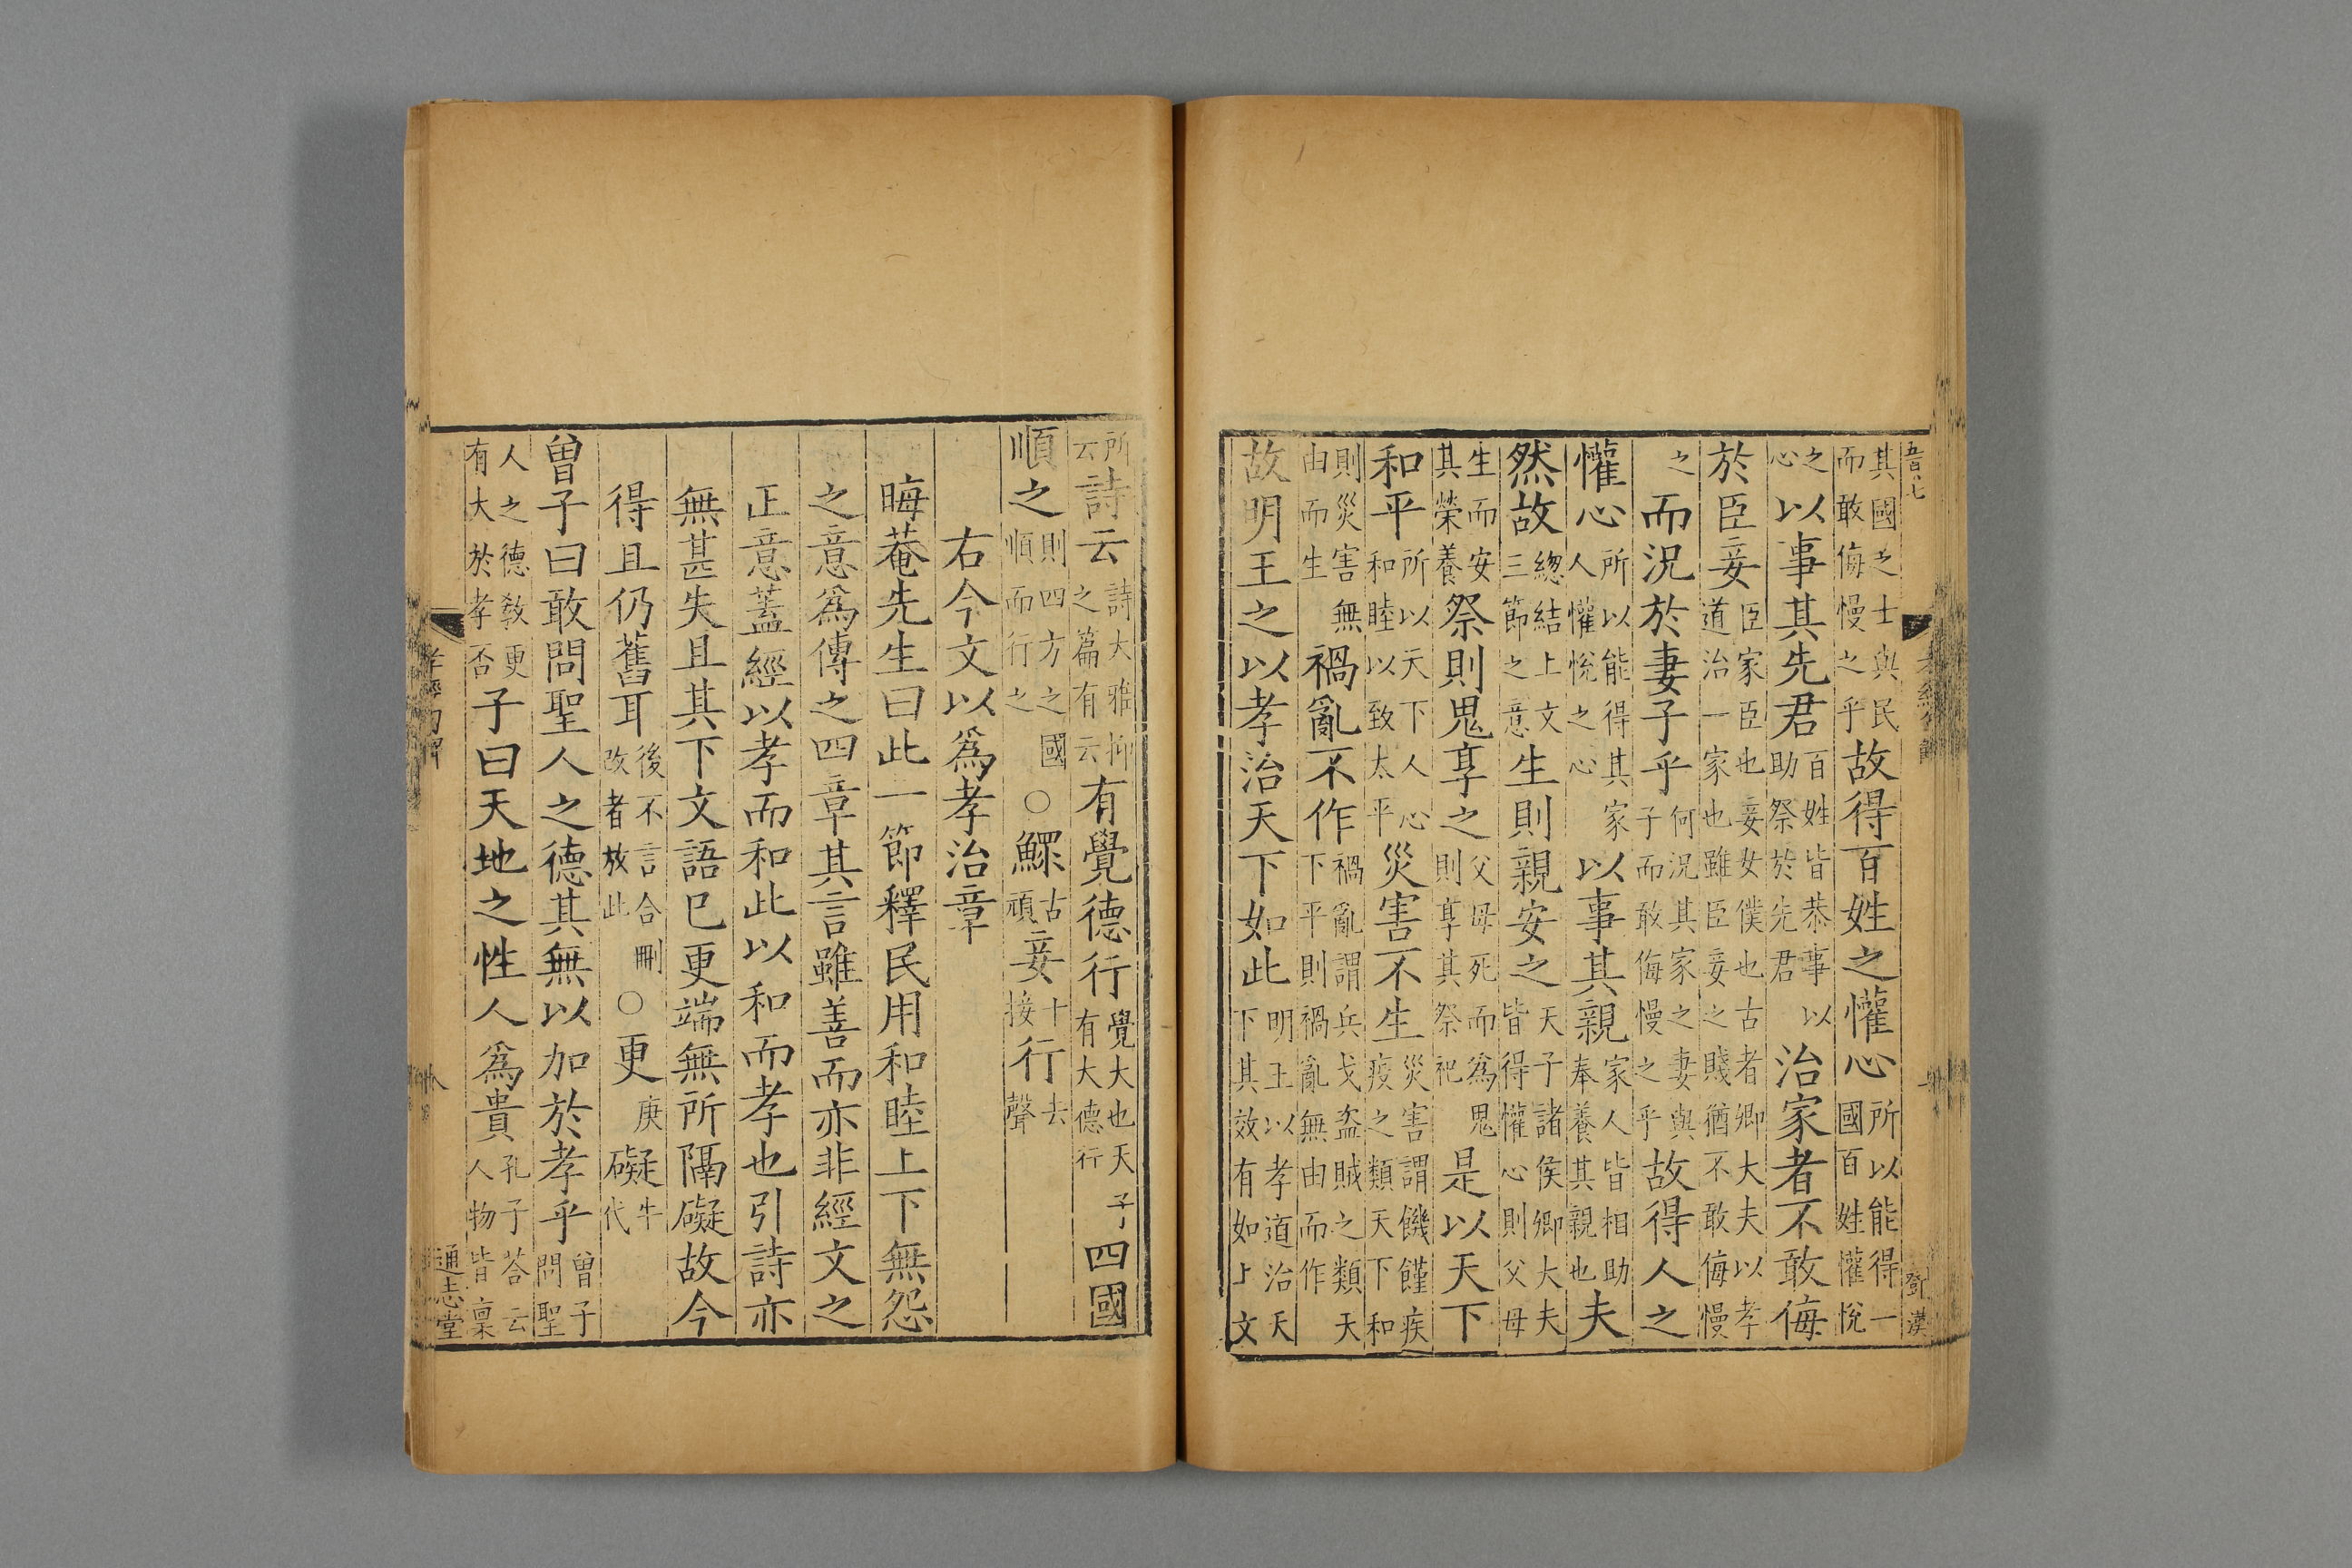 五百七 鄧漢
其國之士與民而敢侮慢之乎故得百姓之懽心所以能得一國百姓懽悅
之心以事其先君百姓皆恭事以助祭於先君治家者不敢侮
於臣妾臣家臣也妾女僕也古者卿大夫以孝道治一家也雖臣妾之賤猶不敢侮慢
之而況於妻子乎何況其家之妻與子而敢侮慢之乎故得人之
懽心所以能得其家人懽悅之心以事其親家人皆相助奉養其親也夫
然故總結上文三節之意生則親安之天子諸侯卿大夫皆得懽心則父母
生而安其榮養祭則鬼享之父母死而爲鬼則享其祭祀是以天下
和平所以天下人心和睦以致太平災害不生災害謂饑饉疾疫之類天下和
則災害無由而生禍亂不作禍亂謂兵戈盗賊之類天下平則禍亂無由而作
故明王之以孝治天下如此明王以孝道治天下其效有如上文
所云詩云詩大雅抑之篇有云有覺德行覺大也天子有大德行四國
順之則四方之國順而行之○鰥古頑妾十接行去聲
右今文以爲孝治章
晦菴先生曰此一節釋民用和睦上下無怨
之意爲傳之四章其言雖善而亦非經文之
正意蓋經以孝而和此以和而孝也引詩亦
無甚失且其下文語巳更端無所隔礙故今
得且仍舊耳後不言合刪改者放此○更庚礙牛代
曾子曰敢問聖人之德其無以加於孝乎曾子問聖
人之德教更有大於孝否子曰天地之性人爲貴孔子荅云人物皆稟
孝經句解 八 通志堂